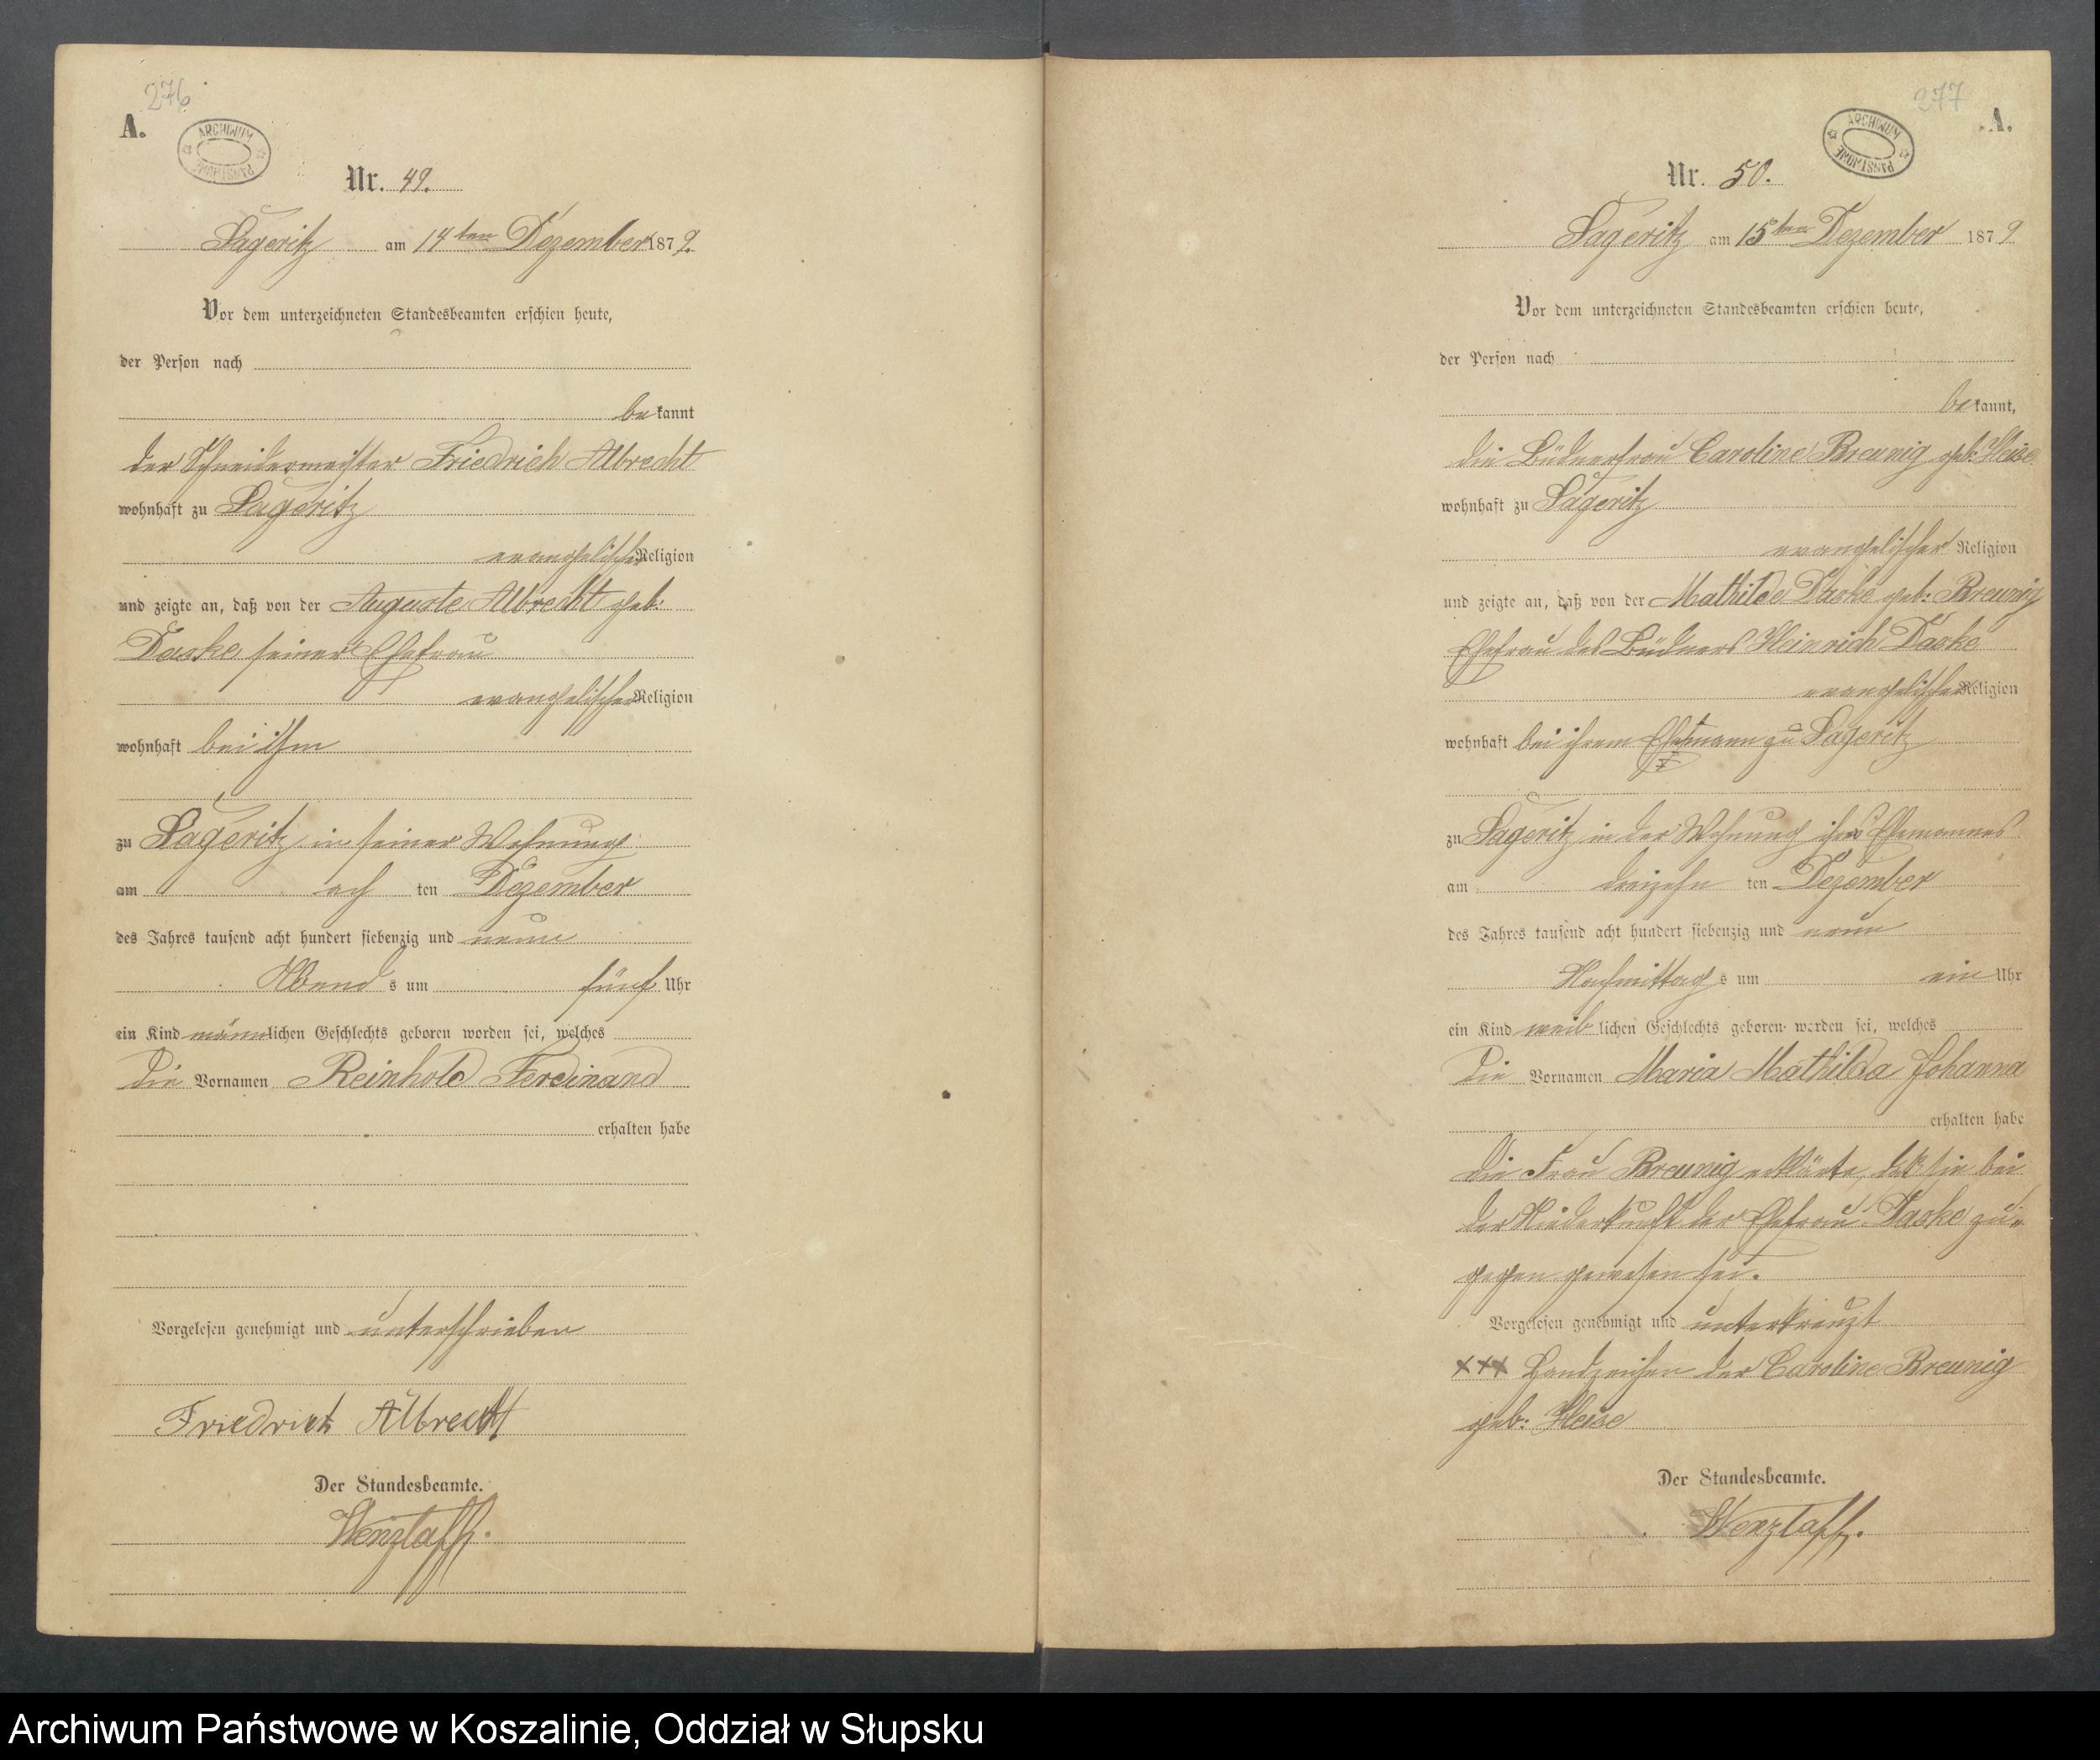 276
A.
ARCHIWUM PAŃSTWOWE
Nr. 49.
Sageritz am 14ten Dezember 1879.
Vor dem unterzeichneten Standesbeamten erschien heute,
der Person nach
bekannt
der Schneidermeister Friedrich Albrecht
wohnhaft zu Sageritz
evangelischer Religion
und zeigte an, daß von der Auguste Albrecht geb:
Daske seiner Ehefrau
evangelischer Religion
wohnhaft bei ihm
zu Sageritz in seiner Wohnung
am ach ten Dezember
des Jahres tausend acht hundert siebenzig und neun
Abend s um fünf Uhr
ein Kind männlichen Geschlechts geboren worden sei, welches
die Vornamen Reinhold Ferdinand
erhalten habe
Vorgelesen genehmigt und unterschrieben
Friedrich Albrecht
Der Standesbeamte.
Wenzlaff.
277
A.
ARCHIWUM PAŃSTWOWE
Nr. 50.
Sageritz am 15ten Dezember 1879
Vor dem unterzeichneten Standesbeamten erschien heute,
der Person nach
bekannt,
die Büdnerfrau Caroline Breunig geb: Heise
wohnhaft zu Sageritz
evangelischer Religion
und zeigte an, daß von der Mathilde Daske geb: Breunig
Ehefrau des Büdners Heinrich Daske
evangelischer Religion
wohnhaft bei ihrem Ehemann zu Sageritz
zu Sageritz in der Wohnung ihres Ehemannes
am dreizehn ten Dezember
des Jahres tausend acht hundert siebenzig und neun
Nachmittag s um ein Uhr
ein Kind weib lichen Geschlechts geboren worden sei, welches
die Vornamen Maria Mathilda Johanna
erhalten habe
die Frau Breunig erklärte, daß sie bei
der Niederkunft der Ehefrau Daske zu-
gegen gewesen sei.
Vorgelesen genehmigt und unterkreuzt
XXX Handzeichen der Caroline Breunig
geb: Heise
Der Standesbeamte.
Wenzlaff.
Archiwum Państwowe w Koszalinie, Oddział w Słupsku